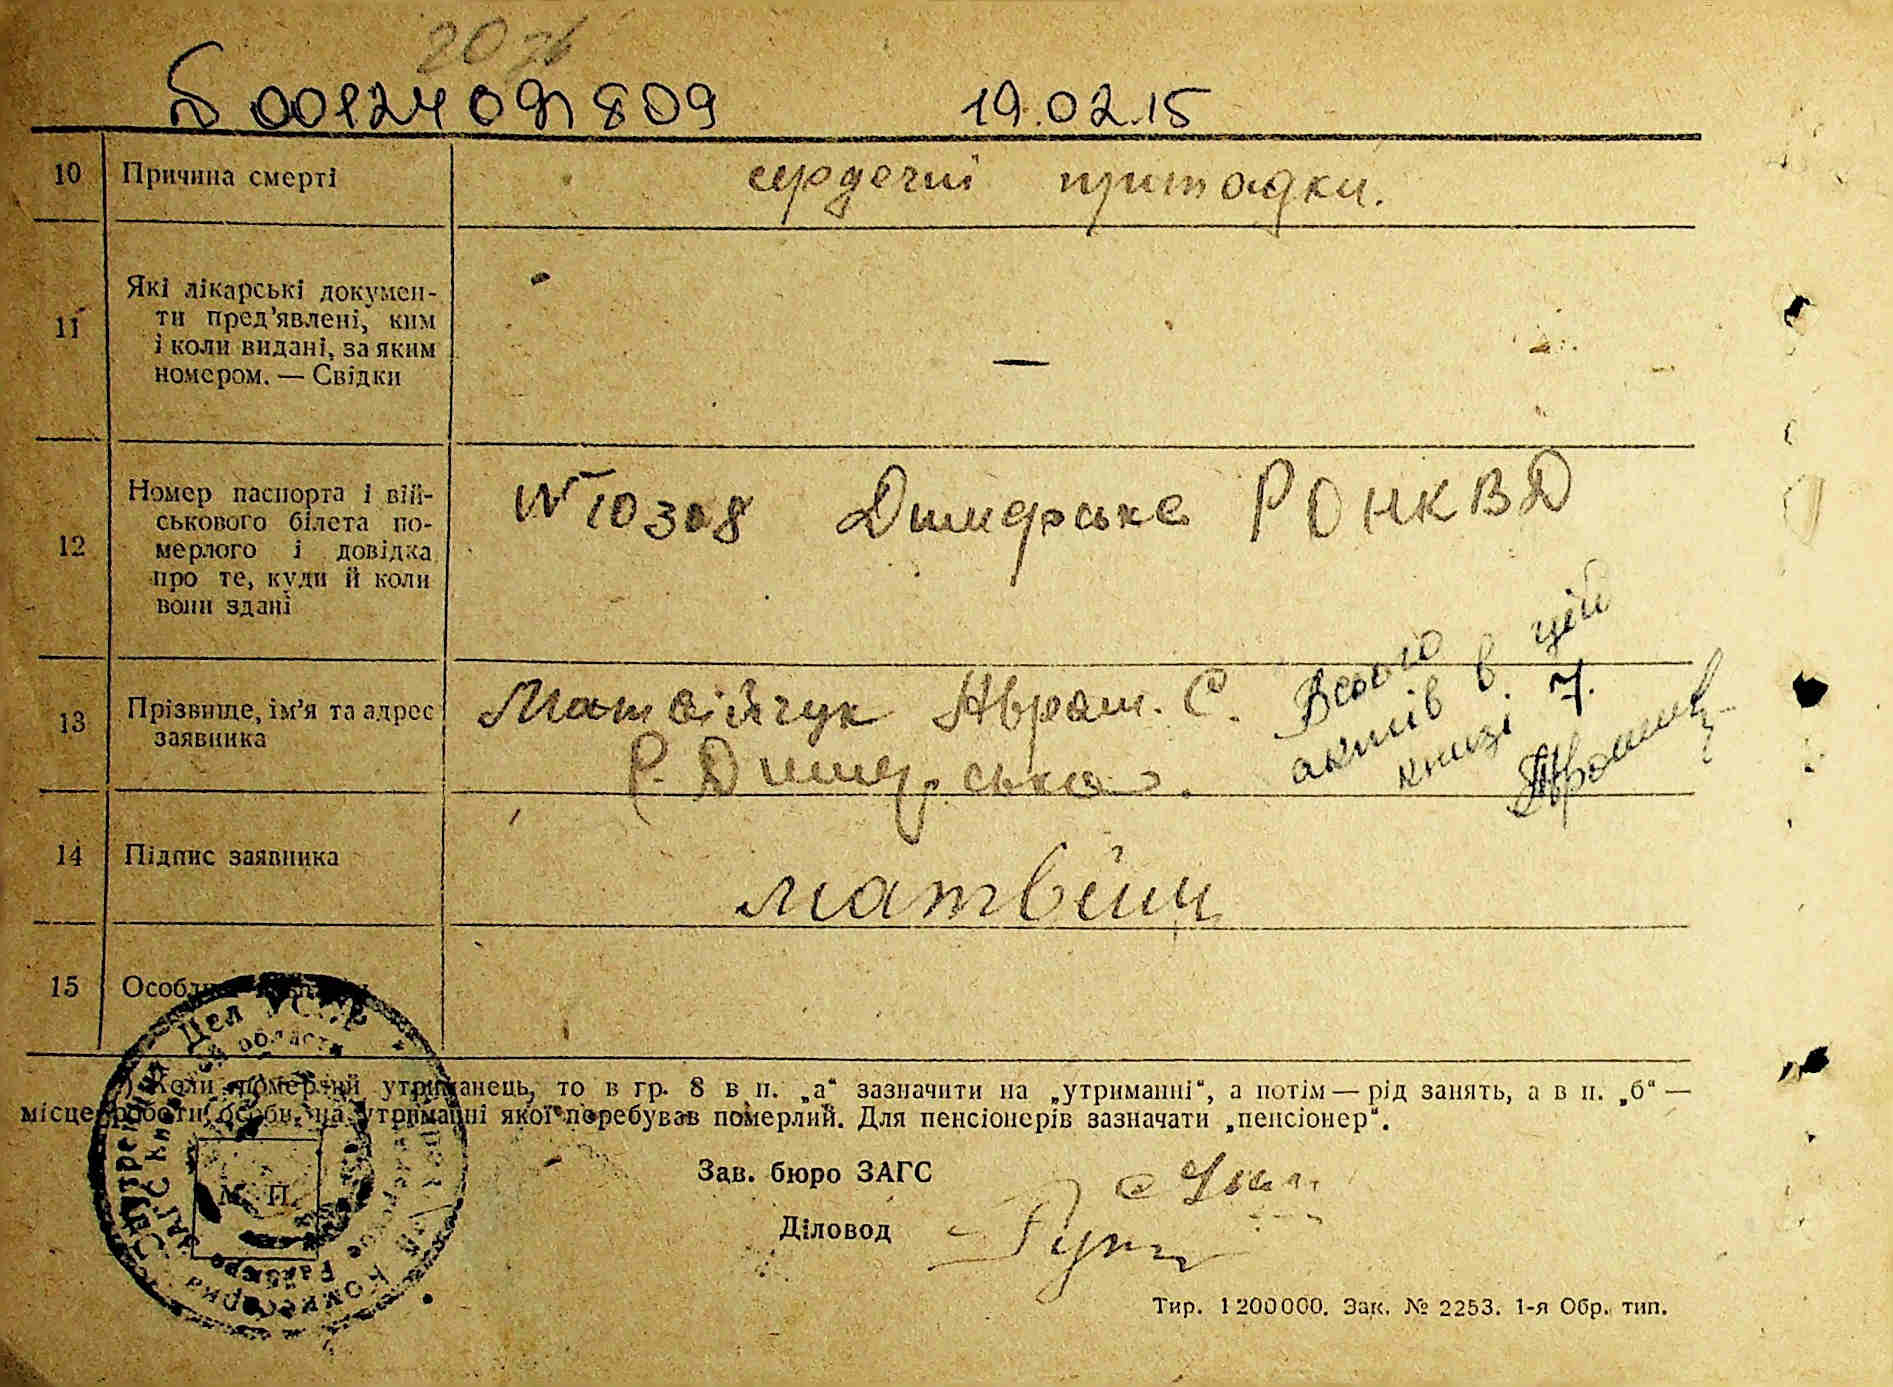 00124091809 19.02.15
10 Причина смерті сердечні припадки.
11 Які лікарські докумен-
ти пред'явлені, ким
і коли видані, за яким
номером. — Свідки —
12 Номер паспорта і вій-
ськового білета по-
мерлого і довідка
про те, куди й коли
вони здані
№ 10308 Димерське РОНКВД
13 Прізвище, ім'я та адрес
заявника
Матвійчук Аврам. С.
Димерська.
Всього
актів в цій
книзі 7.
14 Підпис заявника Матвійч
15
Коли померлий утриманець, то в гр. 8 в п. „а“ зазначити на „утриманні“, а потім — рід занять, а в п. „б“ —
місце роботи особи, на утриманні якої перебував померлий. Для пенсіонерів зазначати „пенсіонер“.
М. П.
Зав. бюро ЗАГС
Діловод
Тир. 1200000. Зак. № 2253. 1-я Обр. тип.